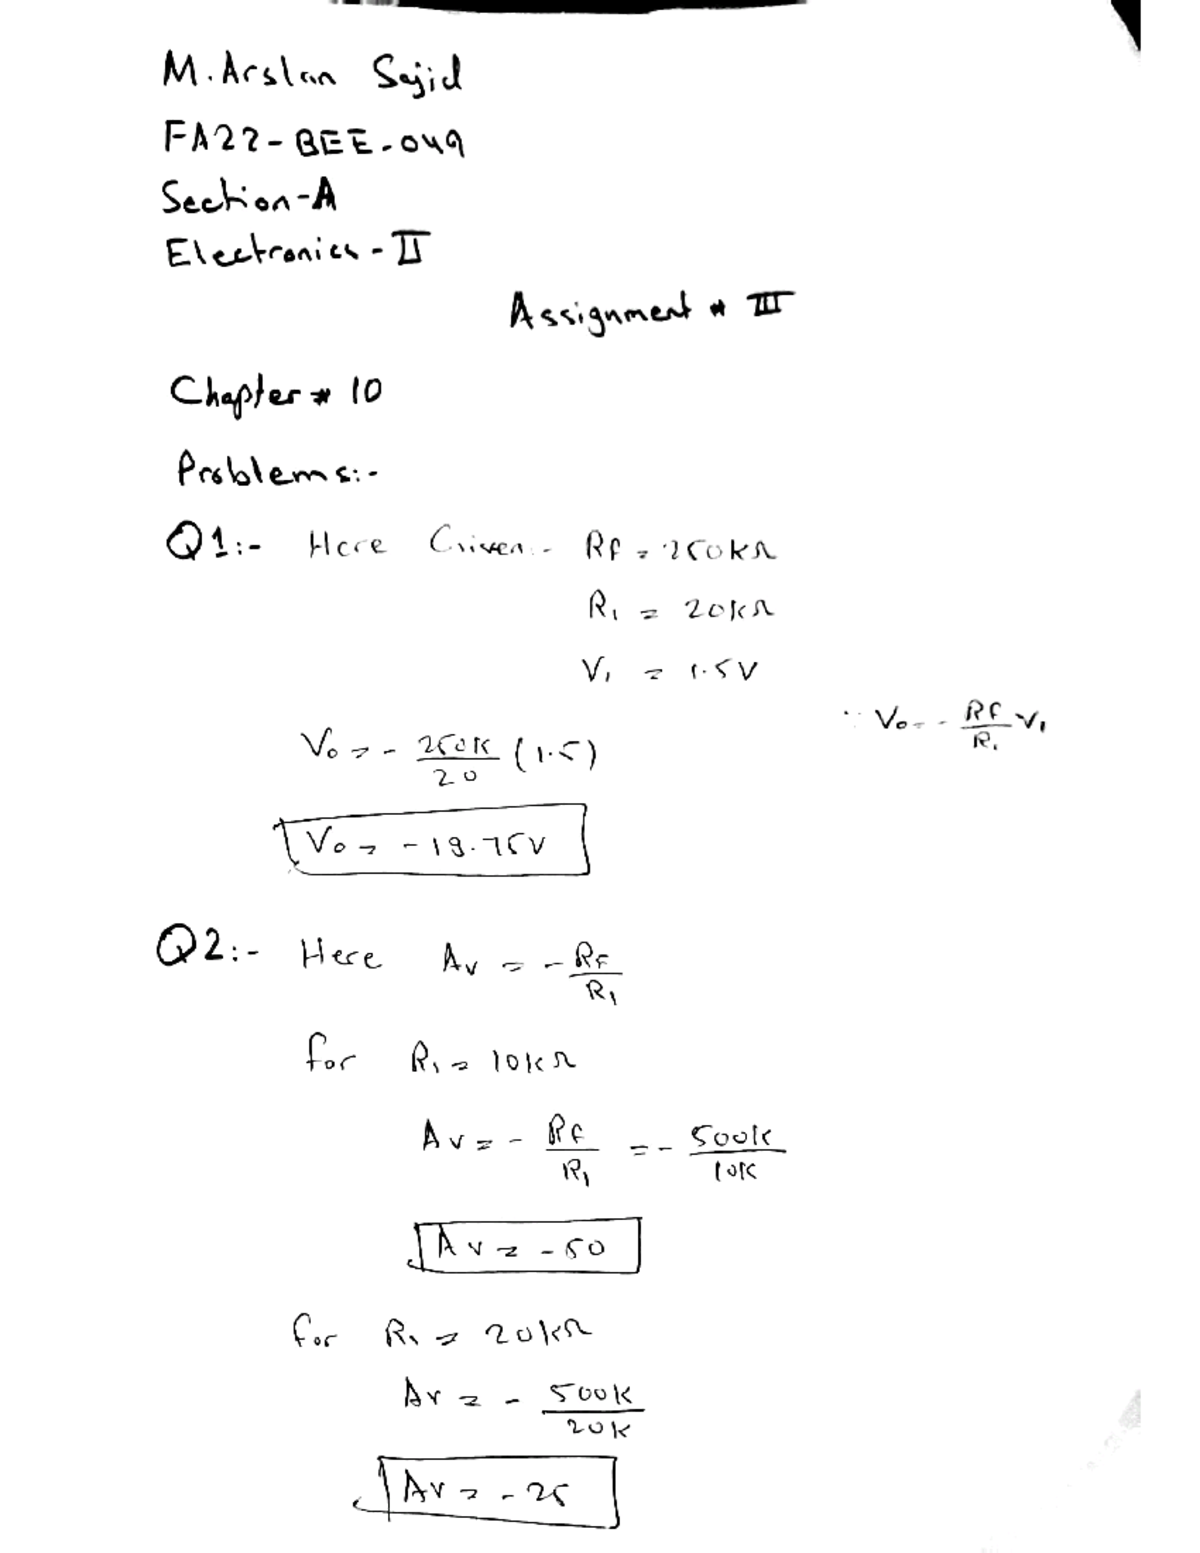 M. Arslan Sajid
FA22-BEE-049
Section-A
Electronics-II
Assignment # III
Chapter # 10
Problems:-
Q1:- Here Given:- Rf = 250kΩ
R1 = 20kΩ
V1 = 1.5V
∵ Vo = - Rf/R1 V1
Vo = - 250K/20 (1.5)
Vo = -18.75V
Q2:- Here Av = - RF/R1
for R1 = 10kΩ
Av = - Rf/R1 = - 500K/10K
Av = -50
for R1 = 20kΩ
Av = - 500K/20K
Av = -25